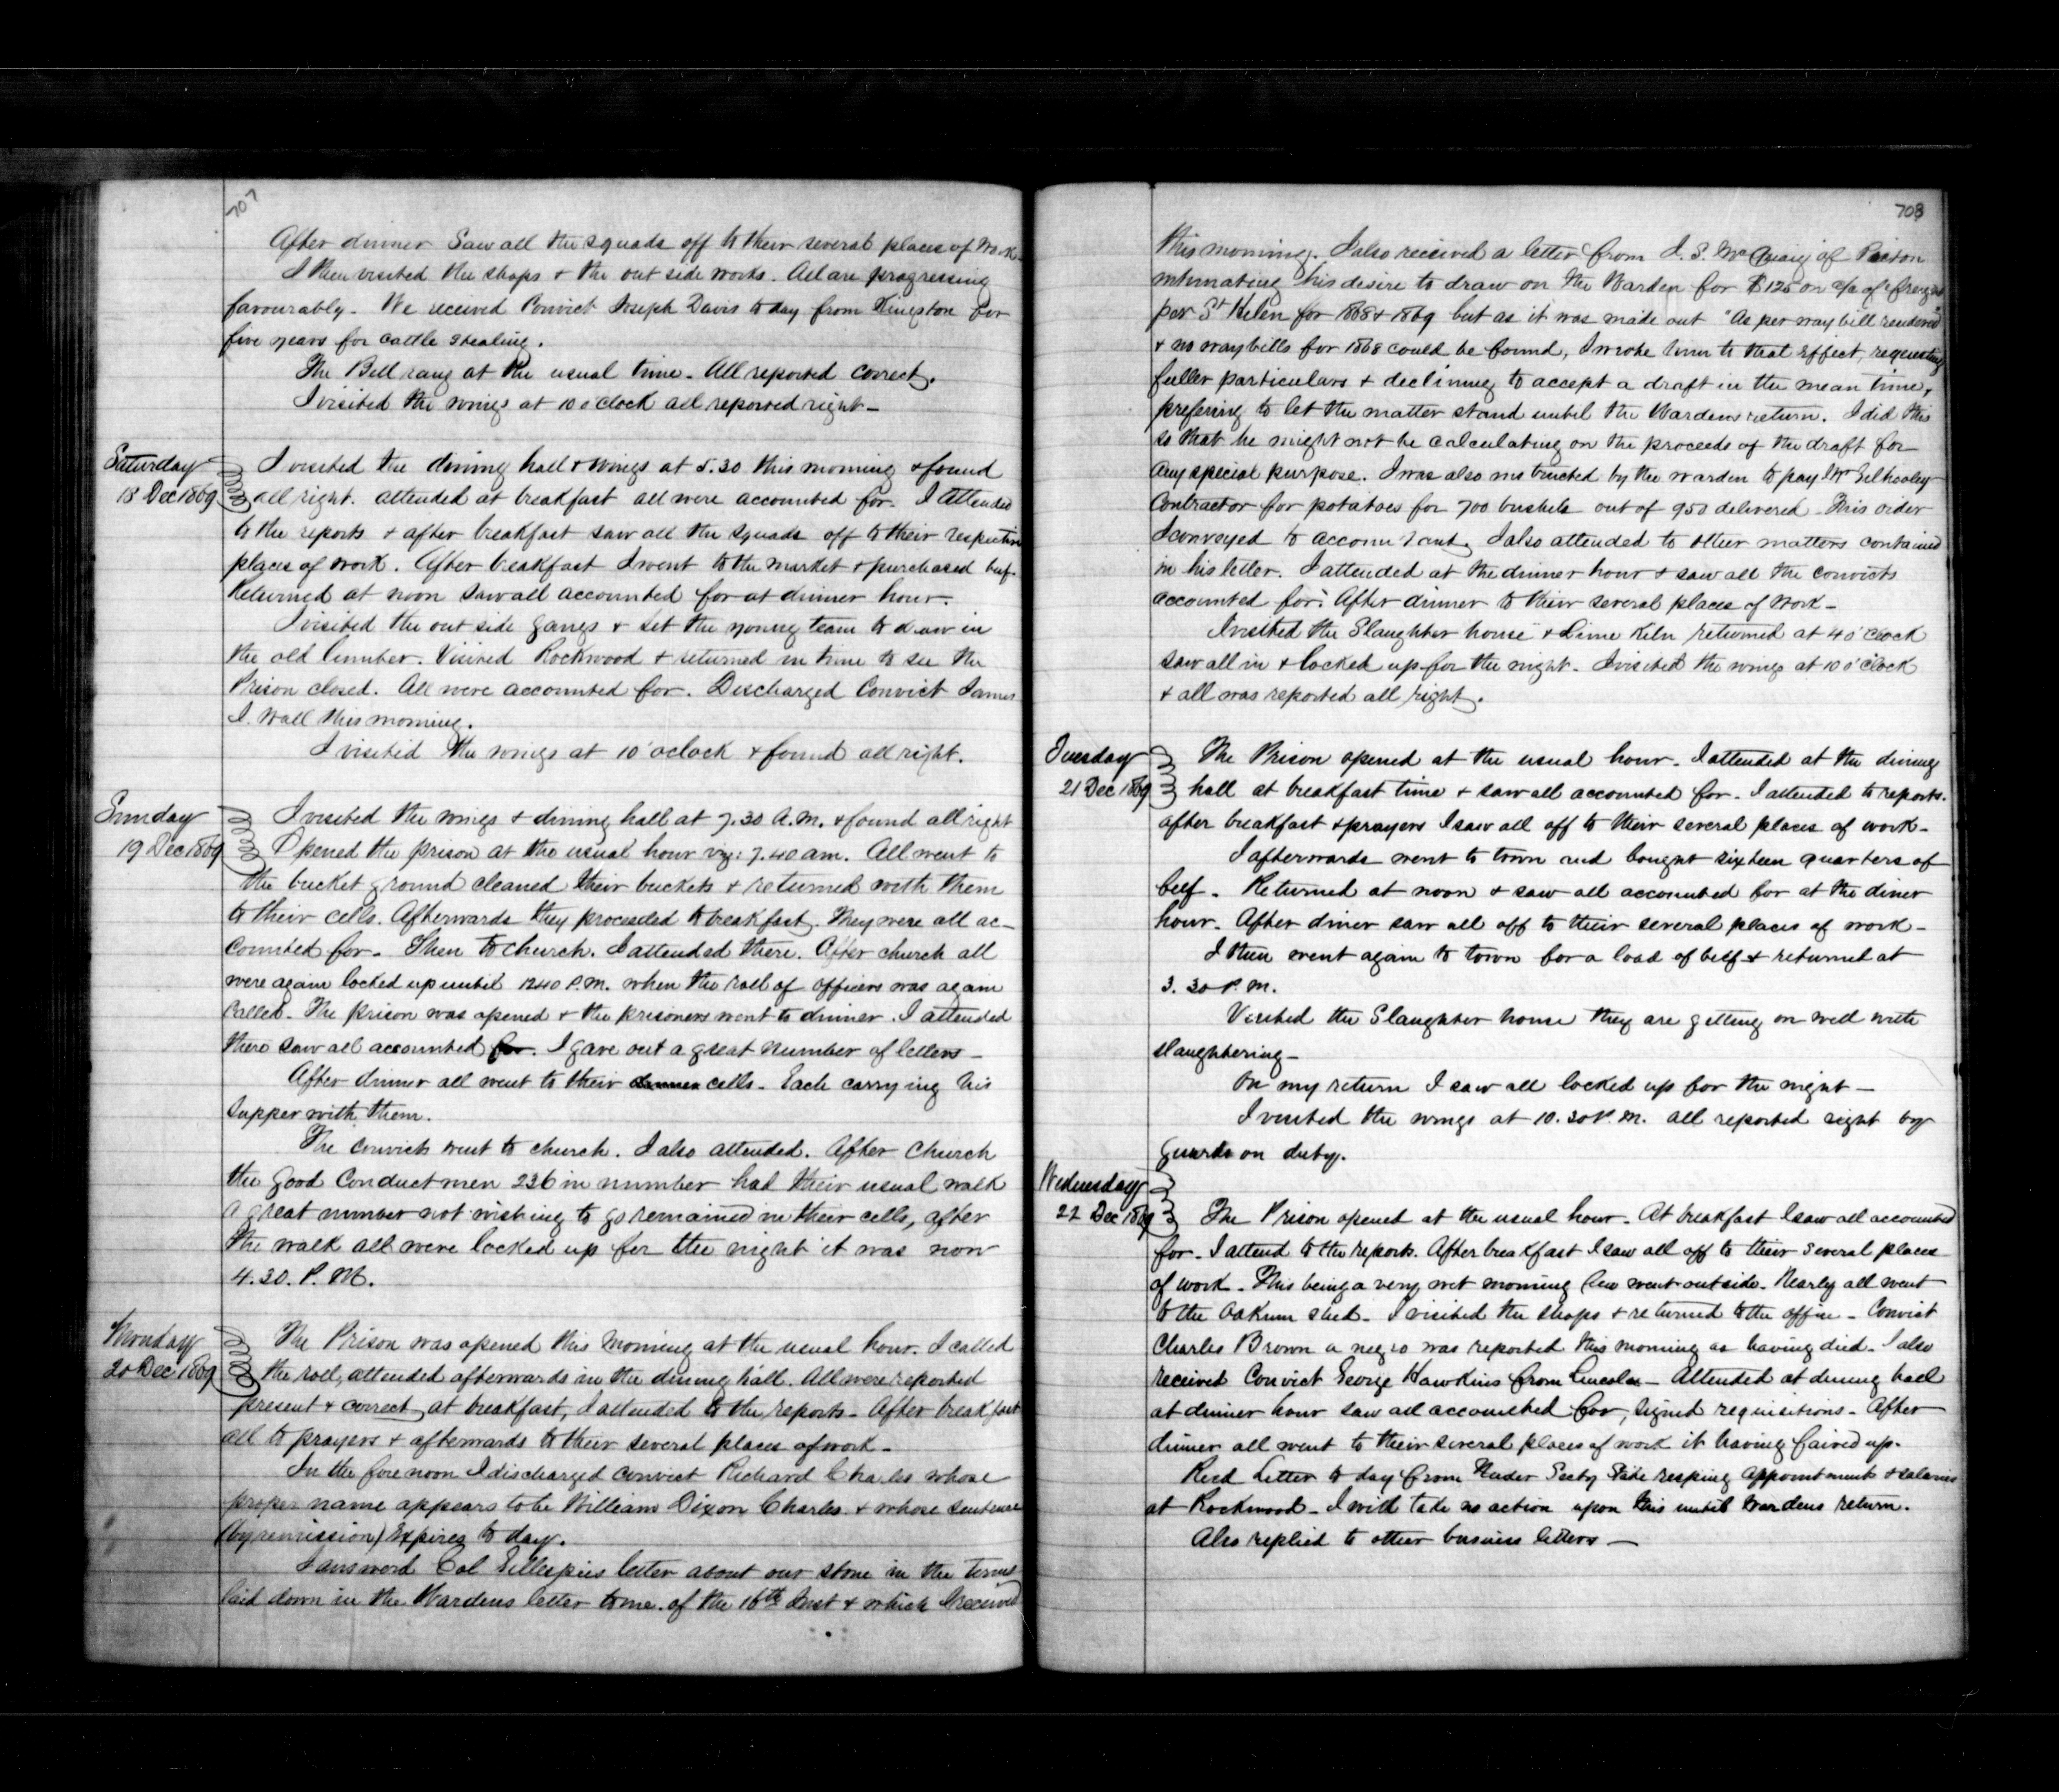 707
After dinner Saw all the squads off to their several places of Work.
I then visited the shops & the out side works. All are progressing
favourably. We received Convict Joseph Davis to day from Kingston for
five years for Cattle Stealing.
The Bell rang at the usual time. All reported correct.
I visited the wings at 10 o'clock all reported right.
Saturday
18 Dec 1869
I visited the dining hall & wings at 5.30 this morning & found
all right. attended at breakfast all were accounted for. I attended
to the reports & after breakfast saw all the squads off to their respective
places of work. After breakfast I went to the market & purchased beef.
Returned at noon saw all accounted for at dinner hour.
I visited the out side gangs & set the young team to draw in
the old lumber. Visited Rockwood & returned in time to see the
Prison closed. All were accounted for. Discharged Convict James
I. Wall this morning.
I visited the wings at 10 'oclock & found all right.
Sunday
19 Dec 1869
I visited the wings & dining hall at 7.30 A.M. & found all right
Opened the prison at the usual hour viz: 7.40 am. All went to
the bucket ground cleaned their buckets & returned with them
to their cells. Afterwards they proceeded to breakfast. They were all ac-
counted for. Then to church. I attended there. After church all
were again locked up until 12.40 P.M. when the roll of officers was again
called. The prison was opened & the prisoners went to dinner. I attended
there saw all accounted for. I gave out a great number of letters.
After dinner all went to their dinner cells. Each carrying his
supper with them.
The convicts went to church. I also attended. After Church
the Good Conduct men 236 in number had their usual walk
a great number not wishing to go remained in their cells, after
the walk all were locked up for the night it was now
4.30. P.M.
Monday
20 Dec 1869
The Prison was opened this morning at the usual hour. I called
the roll, attended afterwards in the dining hall. All were reported
present & correct, at breakfast, I attended to the reports. After breakfast
all to prayers & afterwards to their several places of work.
In the fore noon I discharged convict Richard Charles whose
proper name appears to be William Dixon Charles & whose sentence
(by remission) Expires to day.
I answord Col Gillespies letter about our stone in the terms
laid down in the Wardens letter to me. of the 16th Inst & which I received
708
this morning. I also received a letter from J. S. McQuaig of Picton
intimating his desire to draw on the Warden for $125 on a/c of freights
per St Helen for 1868 & 1869 but as it was made out "As per way bill rendered"
& no way bills for 1868 could be found, I wrote him to that Effect, requesting
fuller particulars & declining to accept a draft in the mean time,
prefering to let the matter stand until the Wardens return. I did this
so that he might not be calculating on the proceeds of the draft for
any special purpose. I was also instructed by the warden to pay Mr Gilhooley
Contractor for potatoes for 700 bushels out of 950 delivered. This order
I conveyed to accountant. I also attended to other matters contained
in his letter. I attended at the dinner hour & saw all the convicts
accounted for. After dinner to their several places of work.
I visited the Slaughter house & Lime Kiln returned at 4 o'clock
saw all in & locked up for the night. I visited the wings at 10 o'clock
& all was reported all right.
Tuesday
21 Dec 1869
The Prison opened at the usual hour. I attended at the dining
hall at breakfast time & saw all accounted for. I attended to reports.
after breakfast & prayers I saw all off to their several places of work.
I afterwards went to town and bought sixteen quarters of
beef. Returned at noon & saw all accounted for at the diner
hour. After diner saw all off to their several places of work.
I then went again to town for a load of beef & returned at
3. 30 P. M.
Visited the Slaughter house they are getting on well with
slaughtering.
On my return I saw all locked up for the night.
I visited the wings at 10.30 P. M. all reported right by
guards on duty.
Wednesday
22 Dec 1869
The Prison opened at the usual hour. At breakfast I saw all accounted
for. I attend to the reports. After breakfast I saw all off to their several places
of work. This being a very wet morning few went outside. Nearly all went
to the Oakum shed. I visited the shops & returned to the office. Convict
Charles Brown a negro was reported this morning as having died. I also
received Convict George Hawkins from Lincoln. Attended at dining hall
at dinner hour saw all accounted for, signed requisitions. After
dinner all went to their several places of work it having faired up.
Recd Letter to day from Under Secty State respting appointments & salaries
at Rockwood. I will take no action upon this until Wardens return.
Also replied to other business letters.